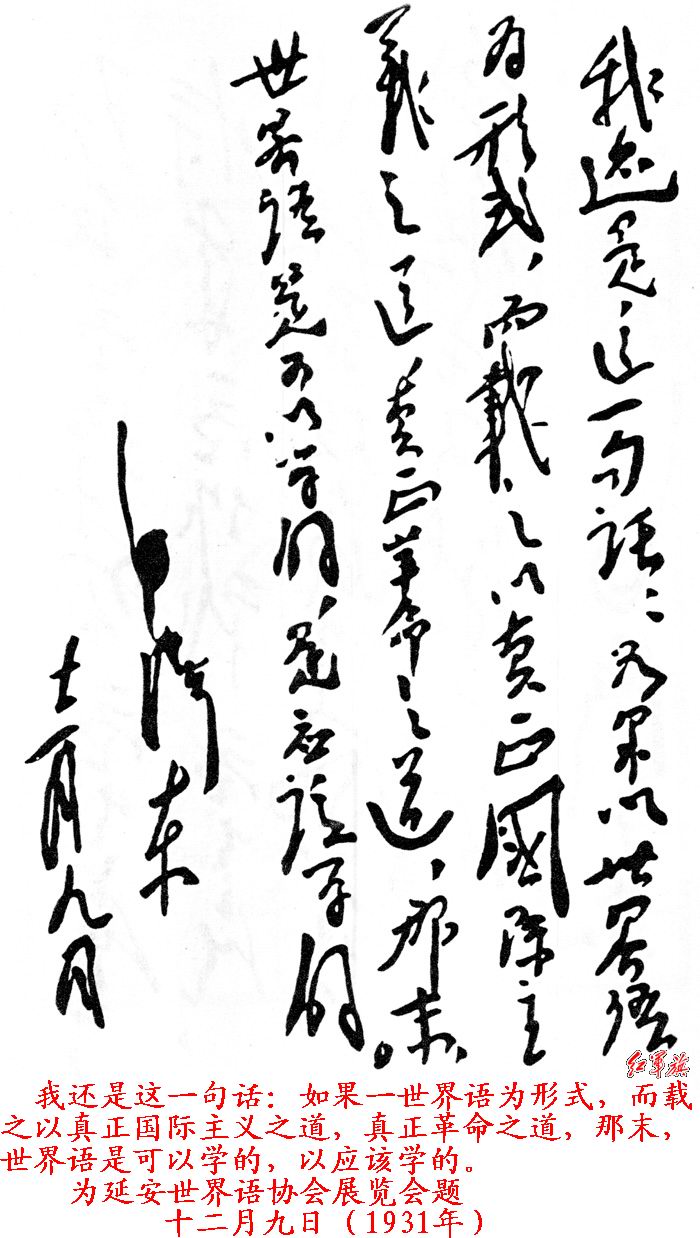 我还是这一句话：如果以世界语
为形式，而载之以真正國际主
義之道，真正革命之道，那末，
世界语是可以学的，是应该学的。
毛泽东
十二月九日
红军旗
我还是这一句话：如果一世界语为形式，而载
之以真正国际主义之道，真正革命之道，那末，
世界语是可以学的，以应该学的。
为延安世界语协会展览会题
十二月九日（1931年）